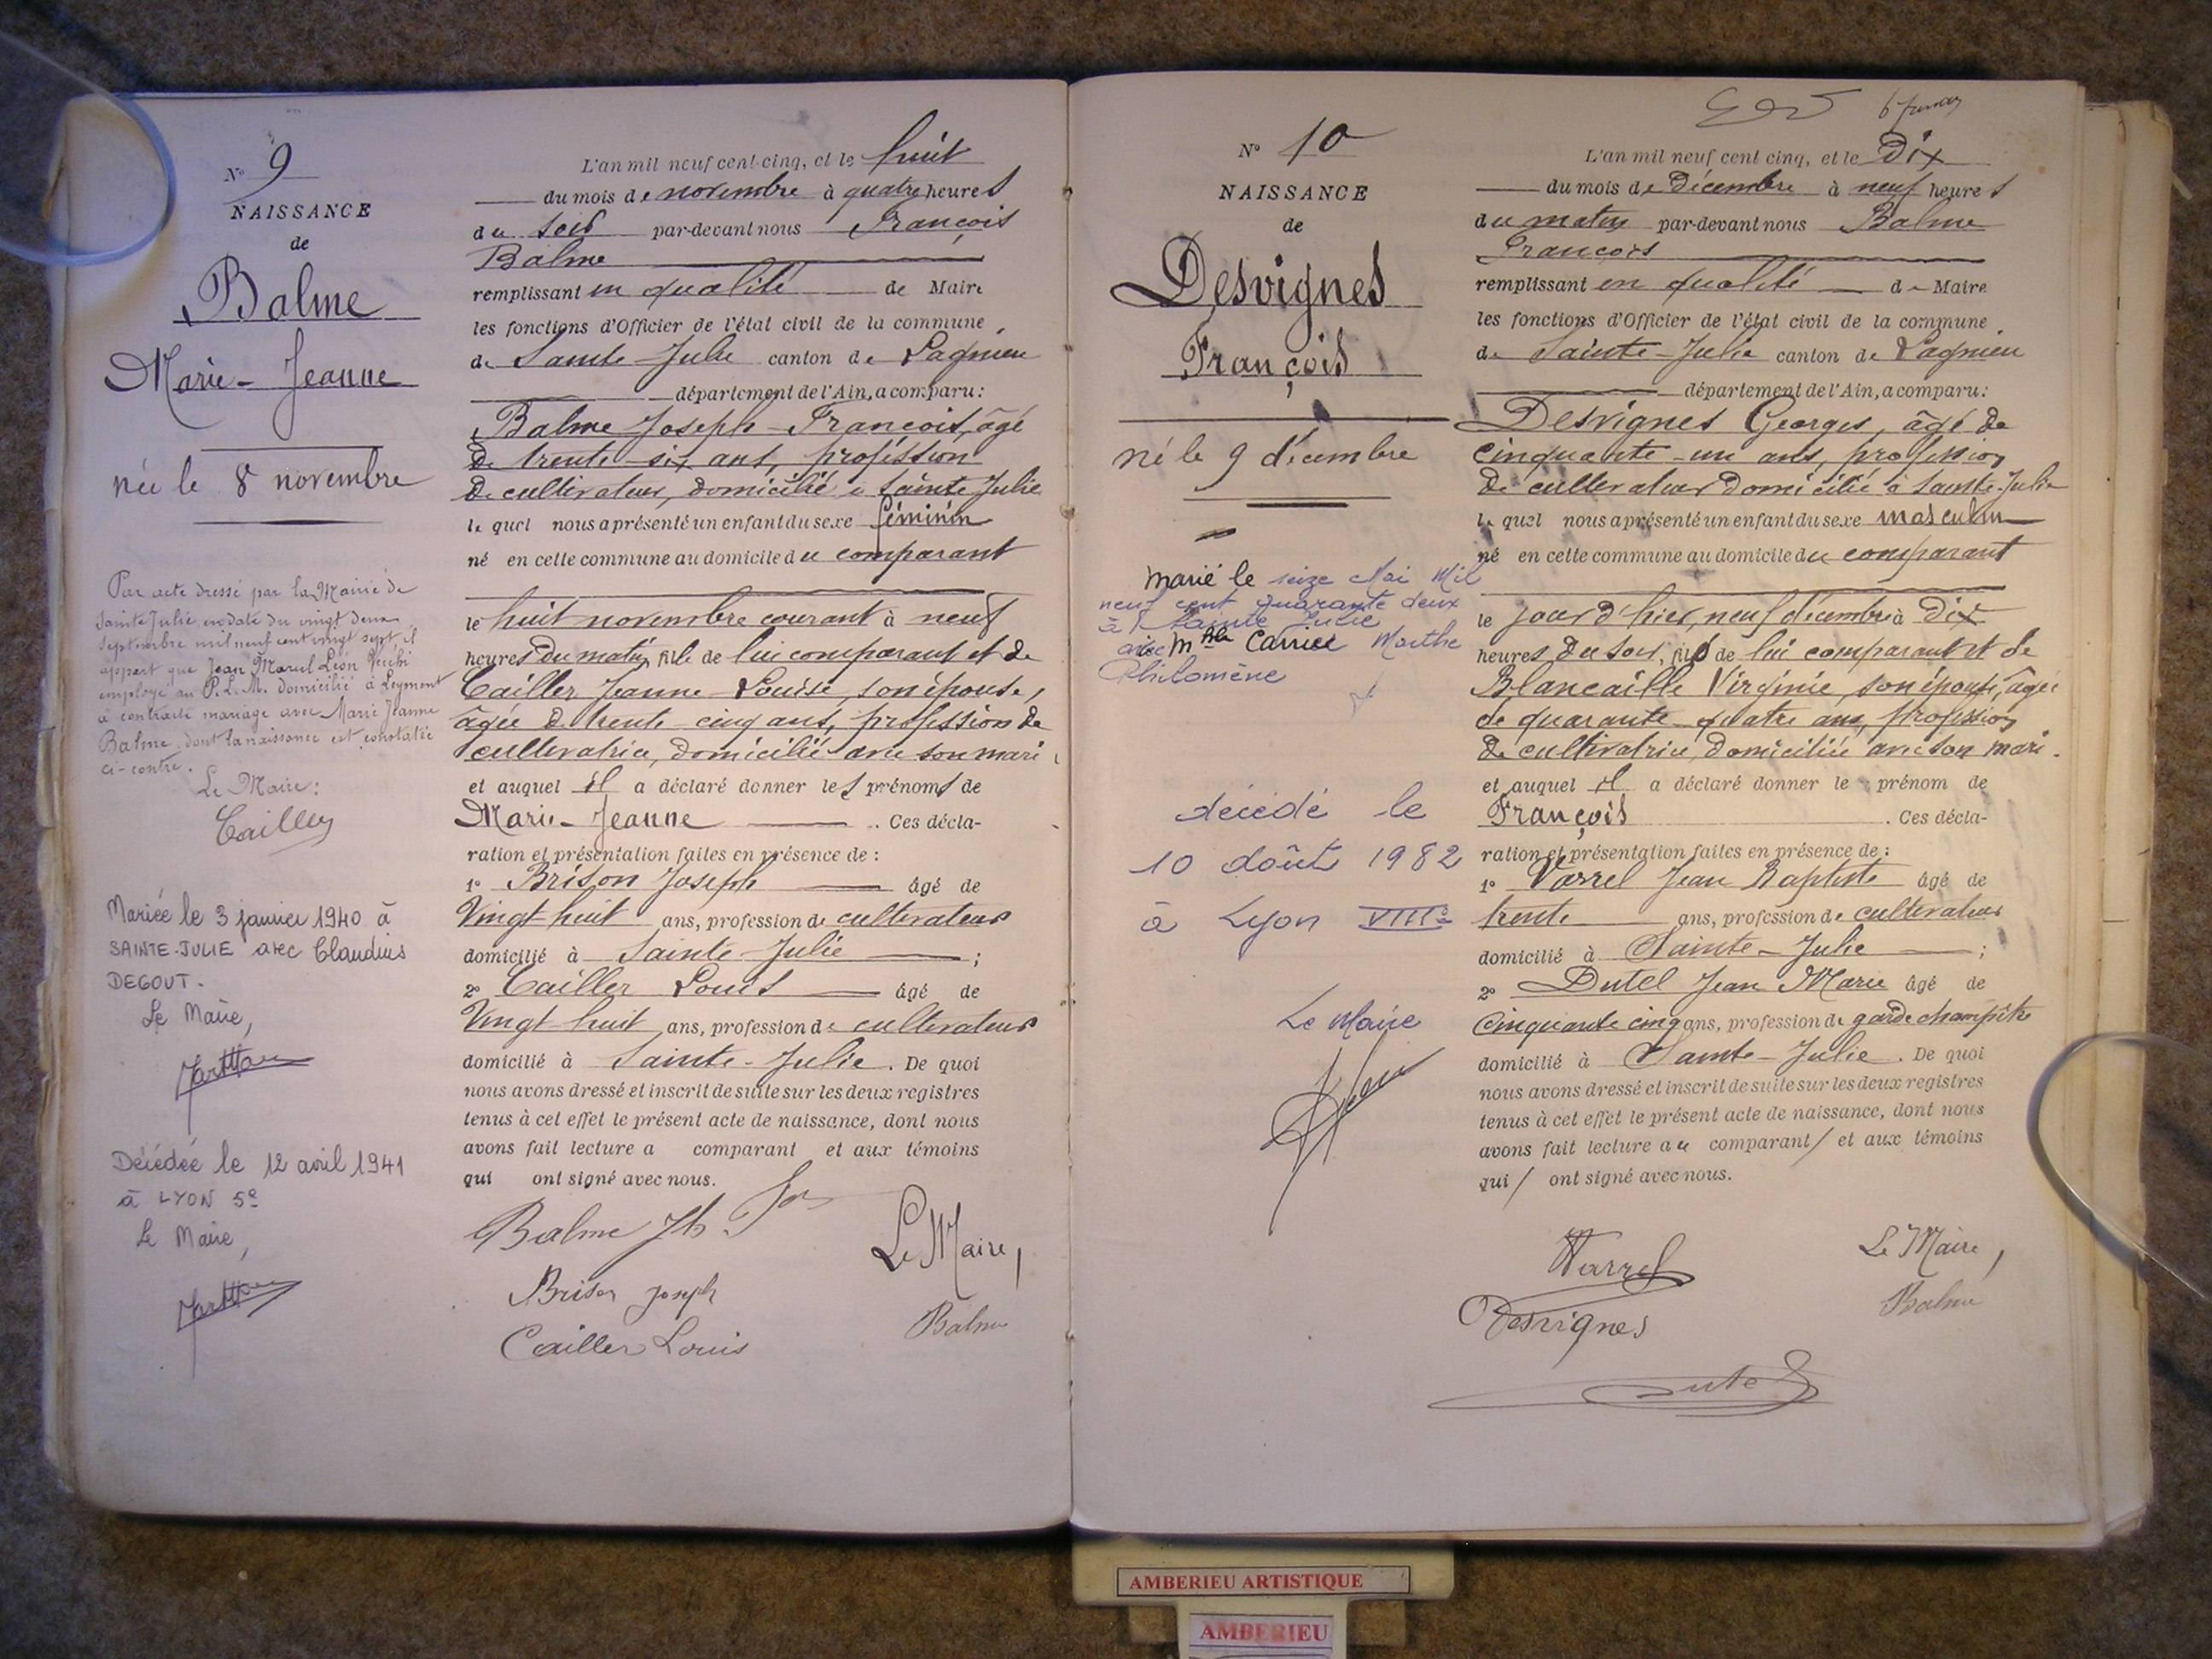 N° 9
NAISSANCE
de
Balme
Marie-Jeanne
née le 8 novembre
Par acte dressé par la Mairie de
Sainte Julie en date du vingt deux
septembre mil neuf cent vingt sept il
appert que Jean Marcel Léon
employé au P.L.M. domicilié à Leyment
à contracté mariage avec Marie Jeanne
Balme dont la naissance est constatée
ci-contre.
Le Maire:
Cailler
Mariée le 3 janvier 1940 à
SAINTE-JULIE avec Claudius
DEGOUT.
Le Maire,
Décédée le 12 avril 1941
à LYON 5e
Le Maire,
L'an mil neuf cent cinq, et le huit
du mois de novembre à quatre heures
du soir par-devant nous François
Balme
remplissant en qualité de Maire
les fonctions d'Officier de l'état civil de la commune
de Sainte-Julie canton de Lagnieu
département de l'Ain, a comparu:
Balme Joseph-François, âgé
de trente-six ans, profession
de cultivateur, domicilié à Sainte Julie
le quel nous a présenté un enfant du sexe féminin
né en cette commune au domicile du comparant
le huit novembre courant à neuf
heures du matin, fille de lui comparant et de
Cailler Jeanne-Louise, son épouse,
âgée de trente-cinq ans, profession de
cultivatrice, domiciliée avec son mari,
et auquel il a déclaré donner les prénoms de
Marie-Jeanne . Ces décla-
ration et présentation faites en présence de :
1° Brison Joseph âgé de
Vingt-huit ans, profession de cultivateur
domicilié à Sainte-Julie ;
2° Cailler Louis âgé de
Vingt-huit ans, profession de cultivateur
domicilié à Sainte-Julie. De quoi
nous avons dressé et inscrit de suite sur les deux registres
tenus à cet effet le présent acte de naissance, dont nous
avons fait lecture a comparant et aux témoins
qui ont signé avec nous.
Balme Jh. Fois
Le Maire,
Brison Joseph
Balme
Cailler Louis
N° 10
NAISSANCE
de
Desvignes
François
né le 9 décembre
marié le seize Mai Mil
neuf cent quarante deux
à Sainte Julie
avec Mlle Carrier Marthe
Philomène
décédé le
10 Août 1982
à Lyon VIIIe
Le Maire
L'an mil neuf cent cinq, et le Dix
du mois de Décembre à neuf heures
du matin par-devant nous Balme
François
remplissant en qualité de Maire
les fonctions d'Officier de l'état civil de la commune
de Sainte-Julie canton de Lagnieu
département de l'Ain, a comparu:
Desvignes Georges, âgé de
cinquante-un ans, profession
de cultivateur domicilié à Sainte-Julie
le quel nous a présenté un enfant du sexe masculin
né en cette commune au domicile du comparant
le jour d'hier, neuf décembre à Dix
heures du soir, fils de lui comparant et de
Blancaille Virginie, son épouse, âgée
de quarante-quatre ans, profession
de cultivatrice, domiciliée avec son mari.
et auquel il a déclaré donner le prénom de
François . Ces décla-
ration et présentation faites en présence de :
1° Varrel Jean Baptiste âgé de
trente ans, profession de cultivateur
domicilié à Sainte-Julie ;
2° Dutel Jean Marie âgé de
Cinquante cinq ans, profession de garde champêtre
domicilié à Sainte-Julie. De quoi
nous avons dressé et inscrit de suite sur les deux registres
tenus à cet effet le présent acte de naissance, dont nous
avons fait lecture au comparant/ et aux témoins
qui/ ont signé avec nous.
Varrel
Le Maire,
Desvignes
Balme
Dutel
AMBERIEU ARTISTIQUE
AMBERIEU